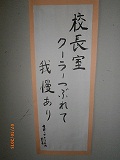 校長室
クーラーつぶれて
我慢あり